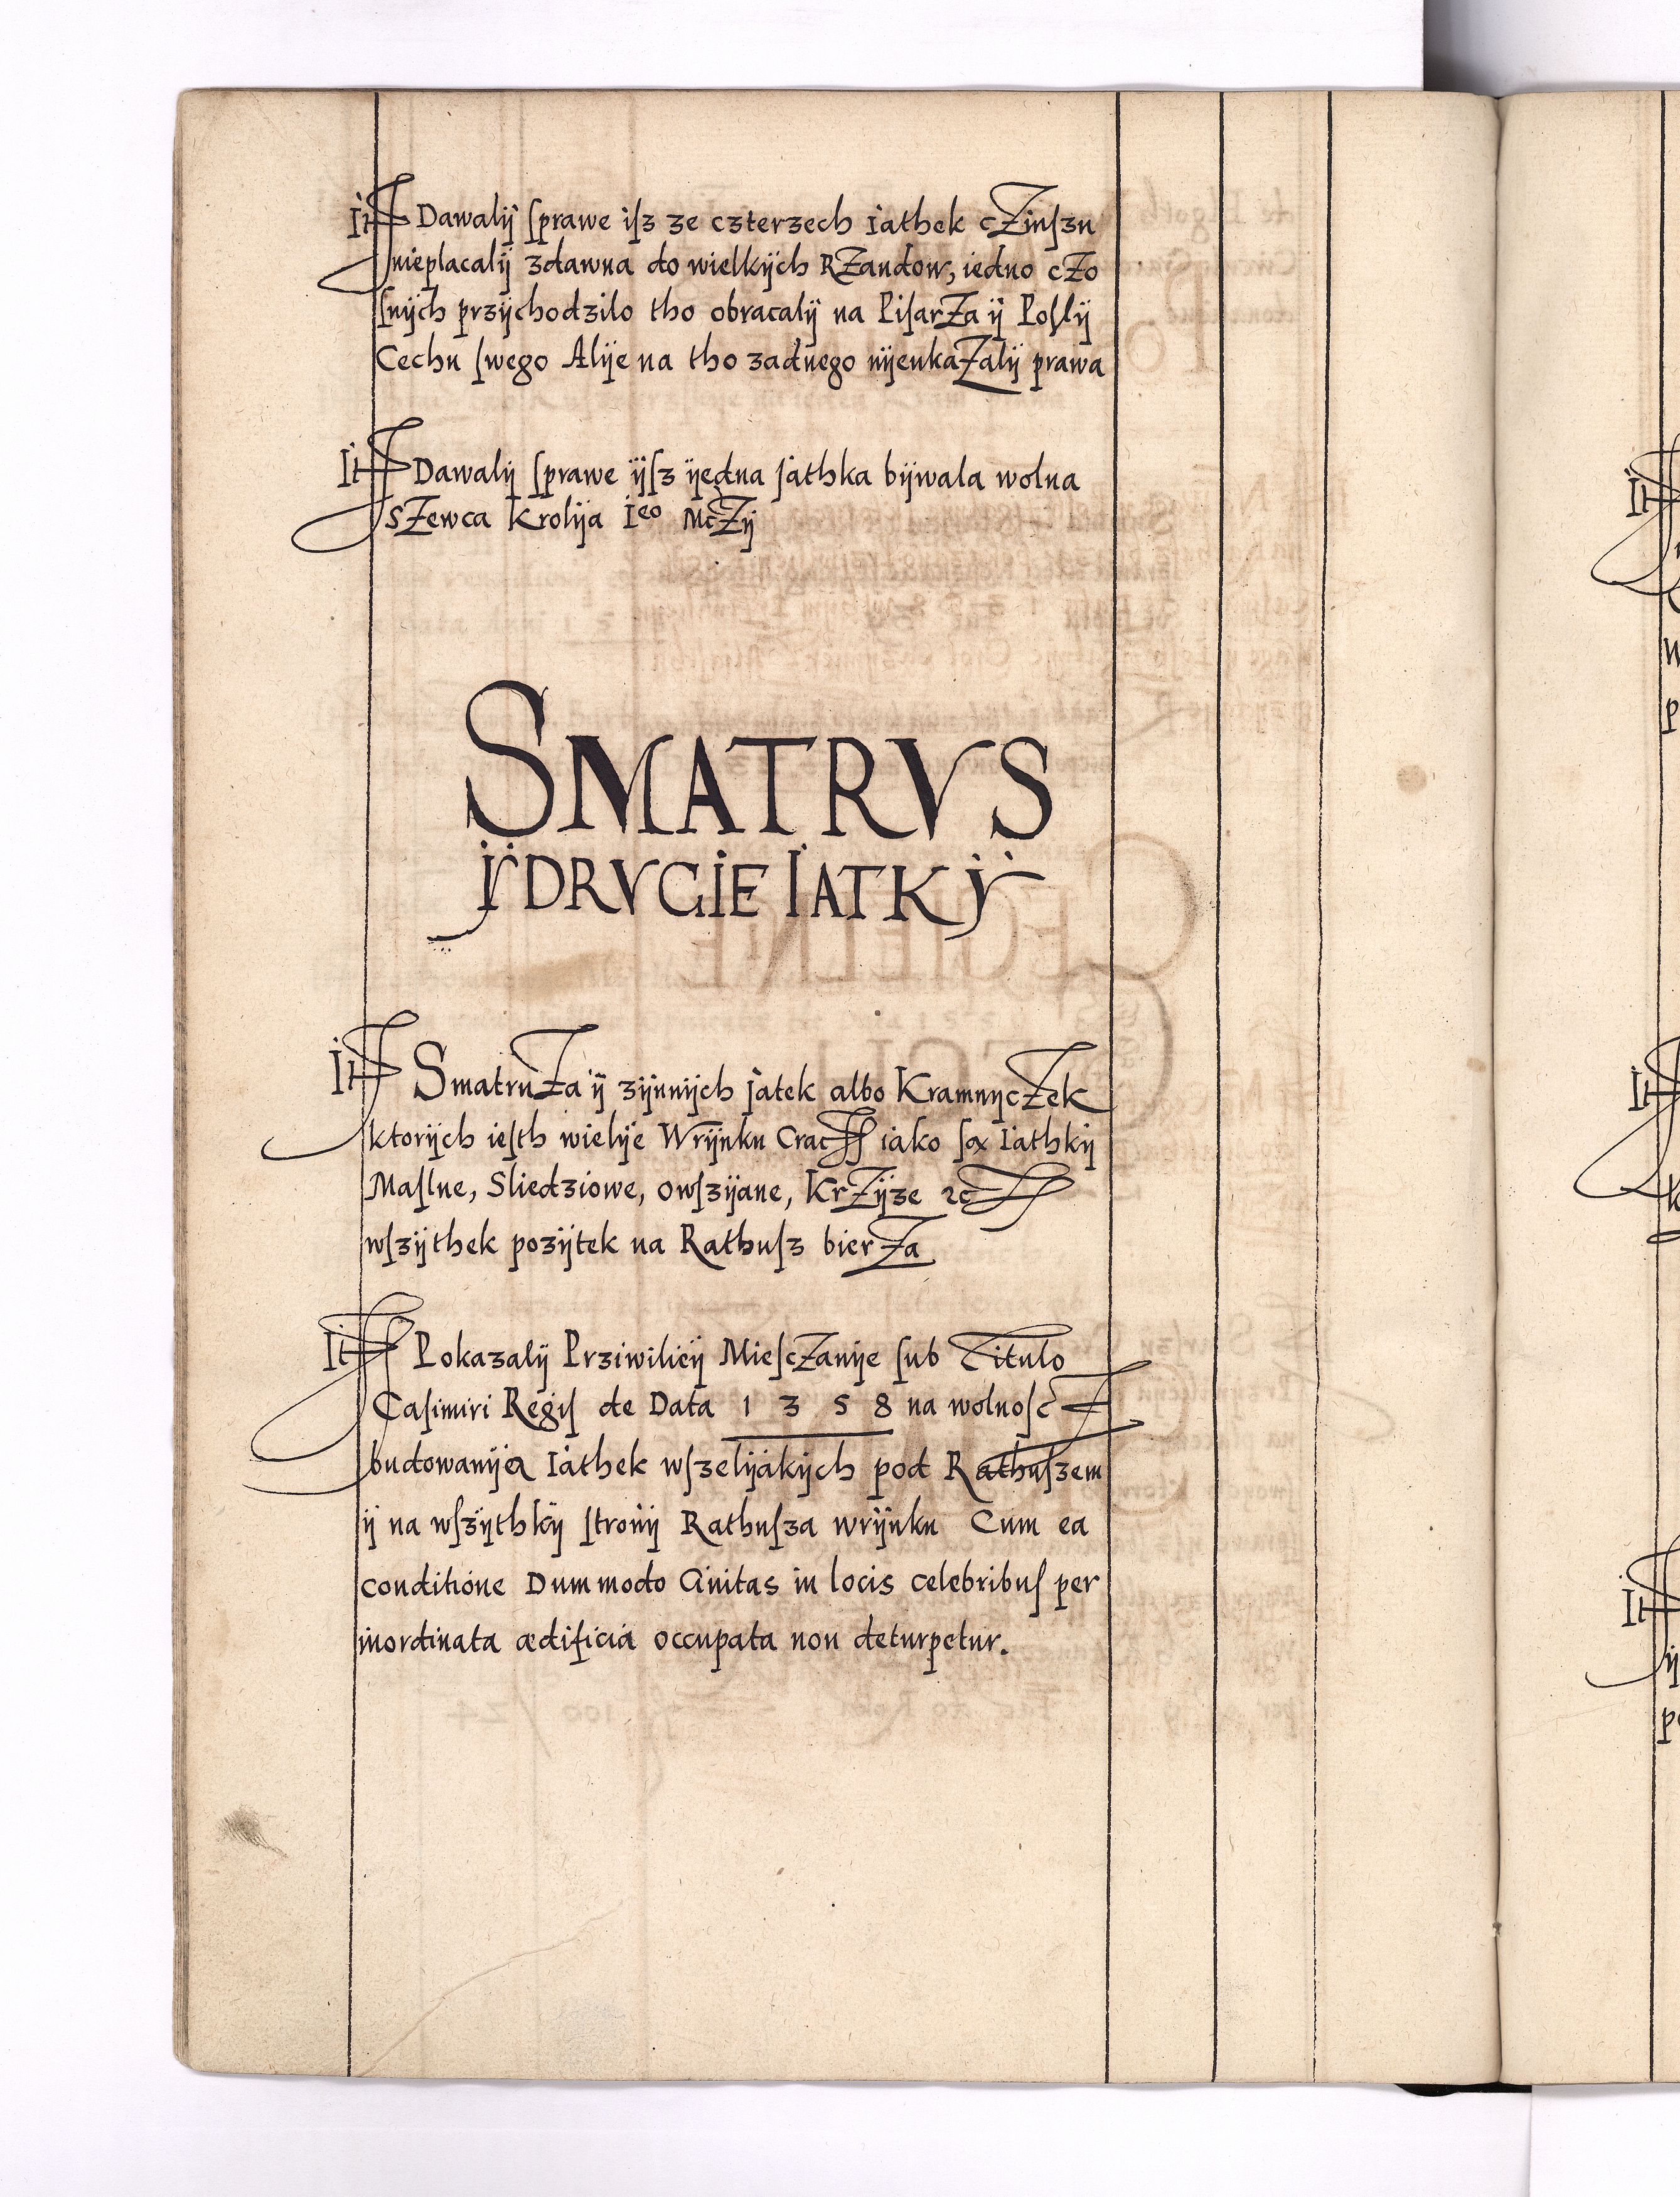 It Dawalÿ ſprawe iſz ze czterzech iathek cZinſzu
nieplacalÿ zdawna do wielkÿch RZandow, iedno cZo
ſnÿch przÿchodzilo tho obracalÿ na PiſarZa ÿ Poſlÿ
Cechu ſwego Alÿe na tho zadnego nÿeukaZalÿ prawa
It Dawalÿ ſprawe ÿſz ÿedna jathka bÿwala wolna
sZewca Krolÿa Ieo McZÿ
SMATRVS
ÿ DRVGIE IATKÿ
It SmatruZa ÿ zÿnnÿch jatek albo KramnÿcZek
ktorÿch ieſth wielÿe Wrÿnku Crac iako ſą Iathkÿ
Maſlne, Sliedziowe, owſzÿane, KrZÿze ꝛc
wſzÿthek pozÿtek na Rathuſz bierZa
It Pokazalÿ Prziwilieÿ MieſcZanÿe ſub Titulo
Caſimiri Regiſ de Data 1 3 5 8 na wolnoſcZ
budowanÿa Iathek wſzelÿakÿch pod Rathuſzem
ÿ na wſzÿthkÿ ſtronÿ Rathuſza wrÿnku Cum ea
conditione Dummodo Ciuitas in locis celebribuſ per
inordinata ædificia occupata non deturpetur.